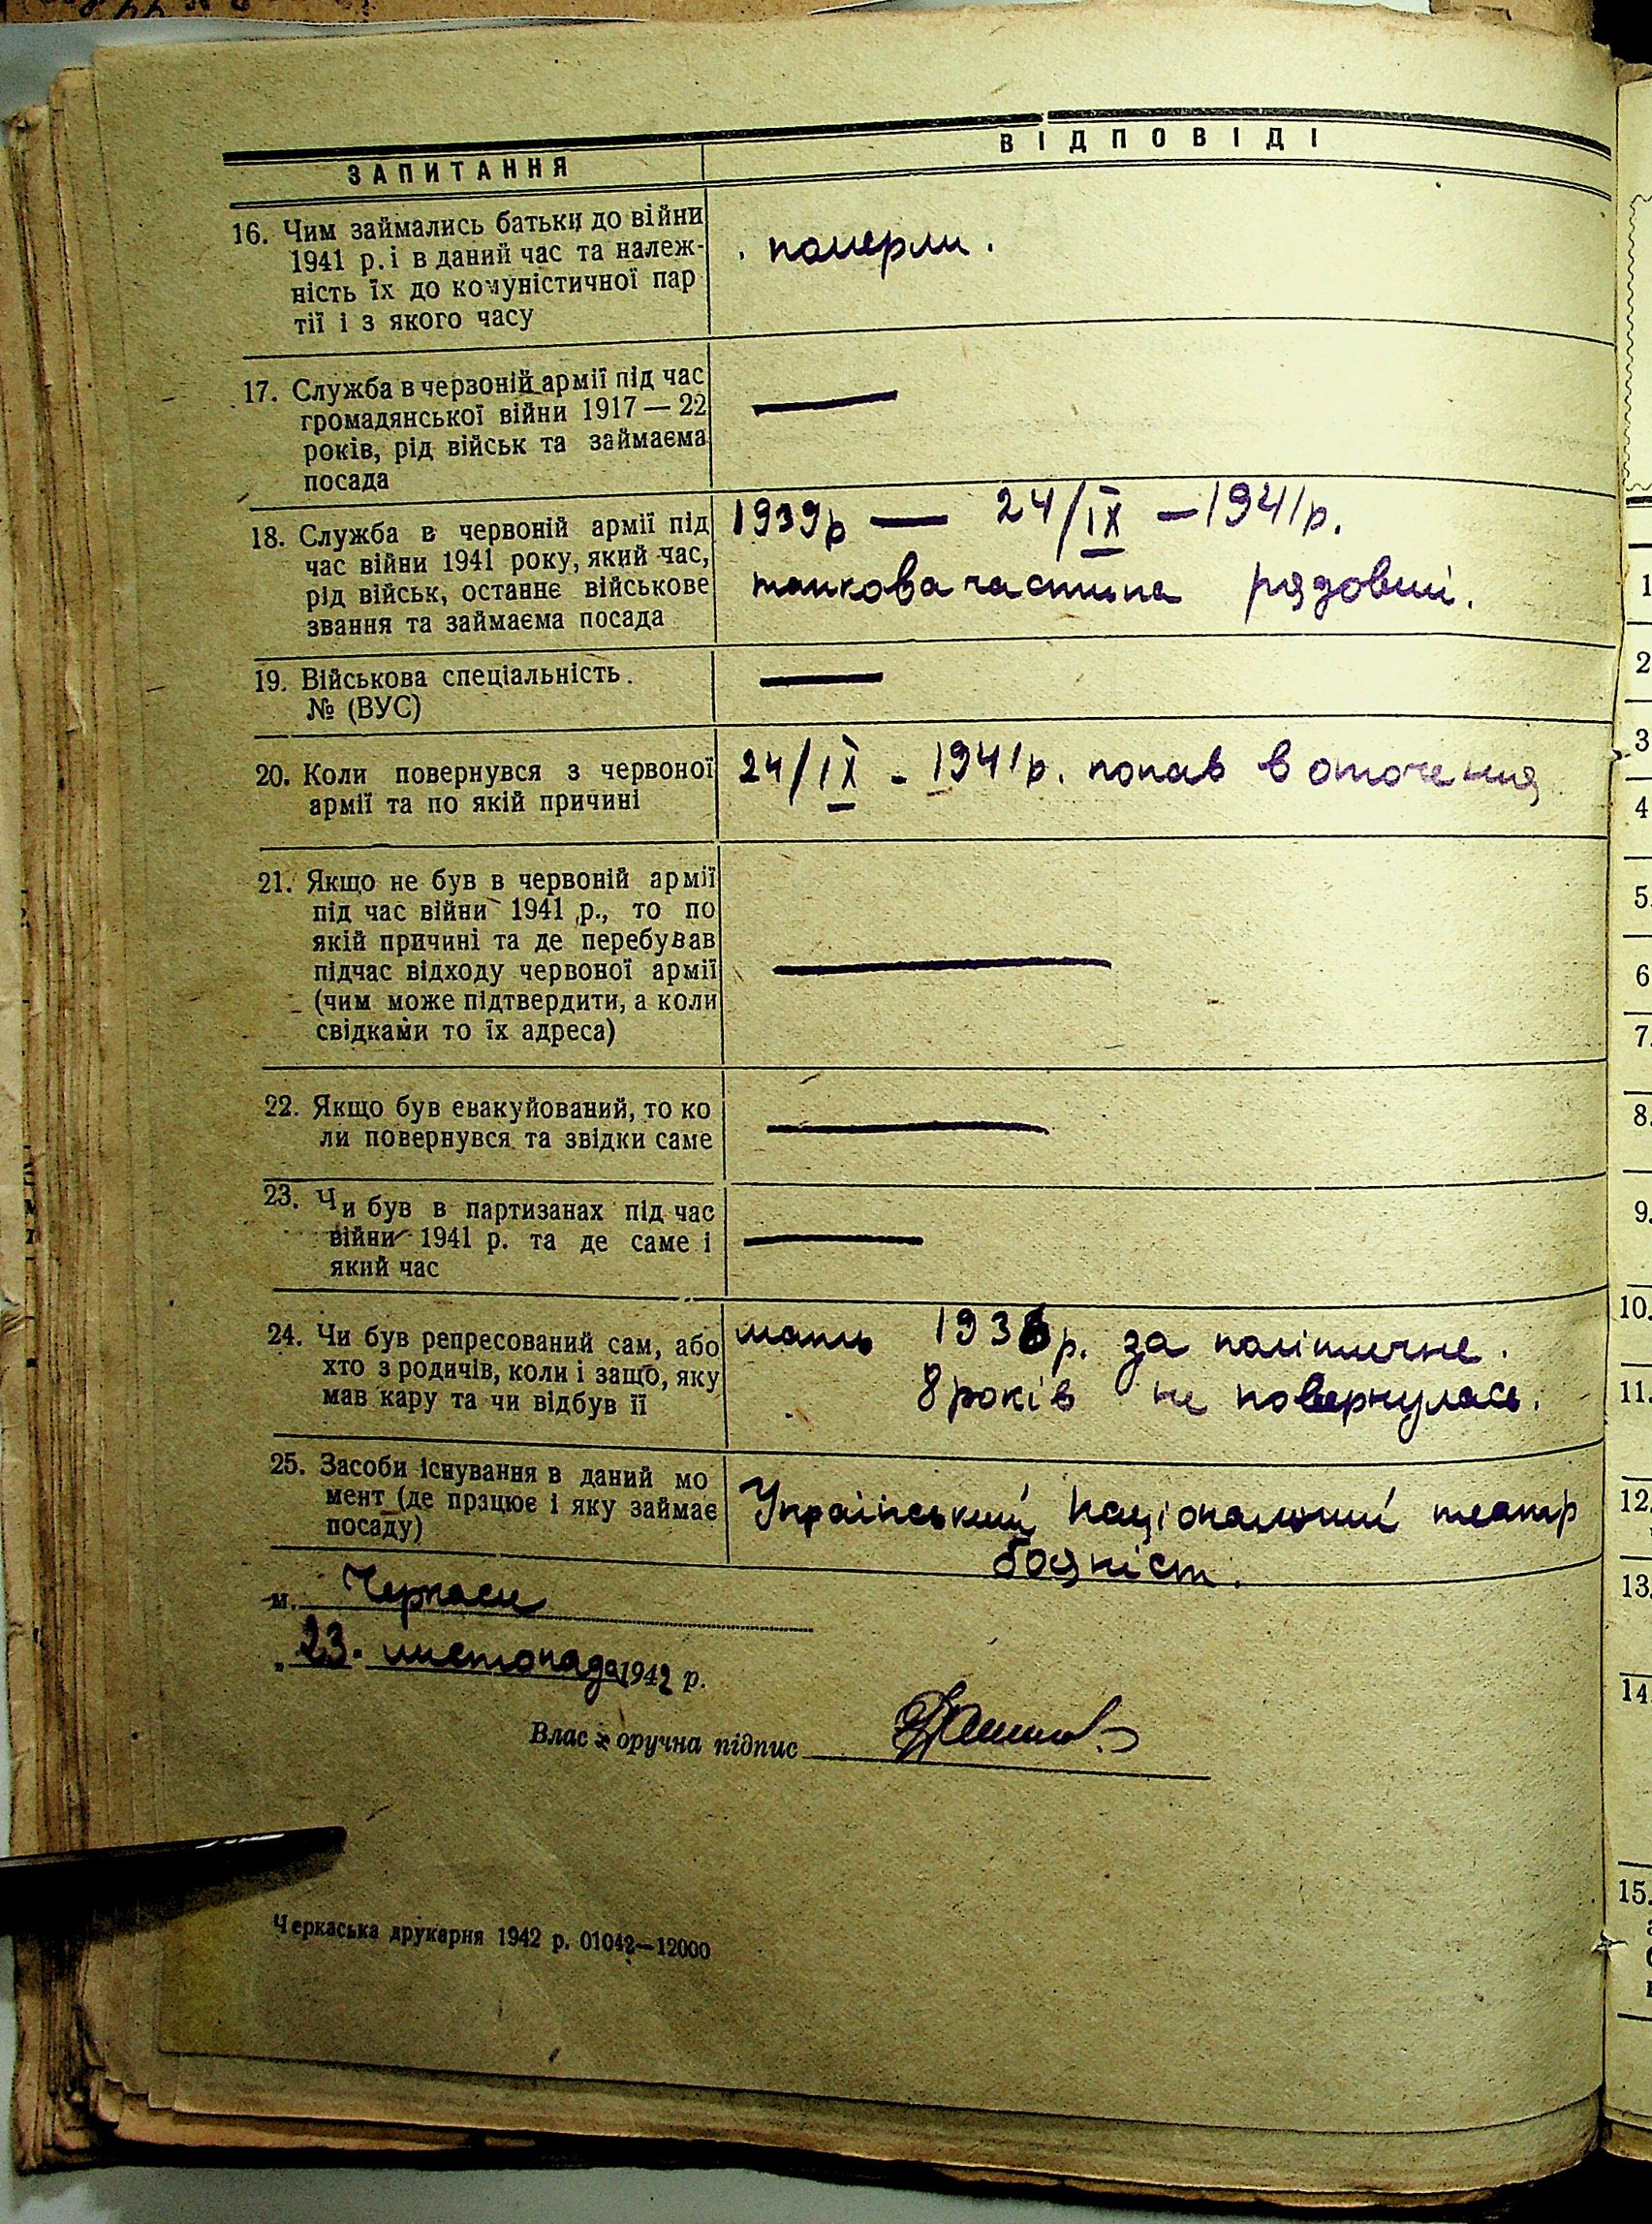 ЗАПИТАННЯ
ВІДПОВІДІ
16. Чим займались батьки до війни
1941 р. і в даний час та належ-
ність їх до комуністичної пар
тії і з якого часу
померли.
17. Служба в червоній армії під час
громадянської війни 1917 — 22
років, рід військ та займаєма
посада
—
18. Служба в червоній армії під
час війни 1941 року, який час,
рід військ, останнє військове
звання та займаєма посада
1939р — 24/IX — 1941р.
танкова частина рядовий.
19. Військова спеціальність.
№ (ВУС)
—
20. Коли повернувся з червоної
армії та по якій причині
24/IX - 1941р. попав в оточення
21. Якщо не був в червоній армії
під час війни 1941 р., то по
якій причині та де перебував
підчас відходу червоної армії
(чим може підтвердити, а коли
свідками то їх адреса)
—
22. Якщо був евакуйований, то ко
ли повернувся та звідки саме
—
23. Чи був в партизанах під час
війни 1941 р. та де саме і
який час
—
24. Чи був репресований сам, або
хто з родичів, коли і защо, яку
мав кару та чи відбув її
мать р. за політичне.
8 років не повернулась.
25. Засоби існування в даний мо
мент (де працює і яку займає
посаду)
Український Національний театр
баяніст.
м. Черкаси
„23. листопада 1942 р.
Влас х оручна підпис
Черкаська друкарня 1942 р. 01042—12000
1
2
3
4
5.
6
7.
8.
9.
10.
11.
12.
13.
14
15.